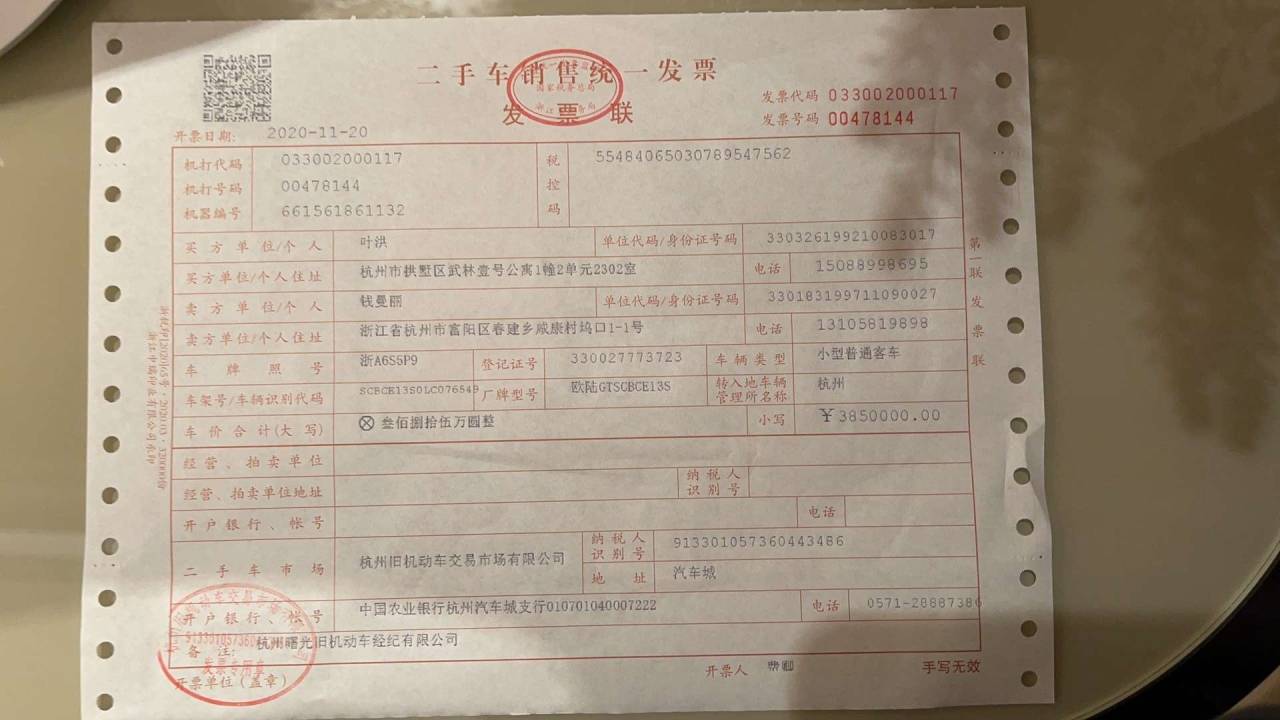 二手车销售统一发票
发票联
国家税务总局
发票代码 033002000117
发票号码 00478144
开票日期: 2020-11-20
机打代码 033002000117
机打号码 00478144
机器编号 661561861132
税控码 55484065030789547562
买方单位/个人 叶洪 单位代码/身份证号码 330326199210083017
买方单位/个人住址 杭州市拱墅区武林壹号公寓1幢2单元2302室 电话 15088998695
卖方单位/个人 钱曼丽 单位代码/身份证号码 330183199711090027
卖方单位/个人住址 浙江省杭州市富阳区春建乡咸康村坞口1-1号 电话 13105819898
车牌照号 浙A6S5P9 登记证号 330027773723 车辆类型 小型普通客车
车架号/车辆识别代码 SCBCE13S0LC076549 厂牌型号 欧陆GTSCBCE13S 转入地车辆管理所名称 杭州
车价合计(大写) ⊗ 叁佰捌拾伍万圆整 小写 ￥3850000.00
经营、拍卖单位
经营、拍卖单位地址 纳税人识别号
开户银行、帐号 电话
二手车市场 杭州旧机动车交易市场有限公司 纳税人识别号 913301057360443486
地址 汽车城
开户银行、帐号 中国农业银行杭州汽车城支行010701040007222 电话 0571-28887386
备注: 杭州曙光旧机动车经纪有限公司
发票专用章
开票单位(盖章) 开票人 手写无效
第一联 发票联